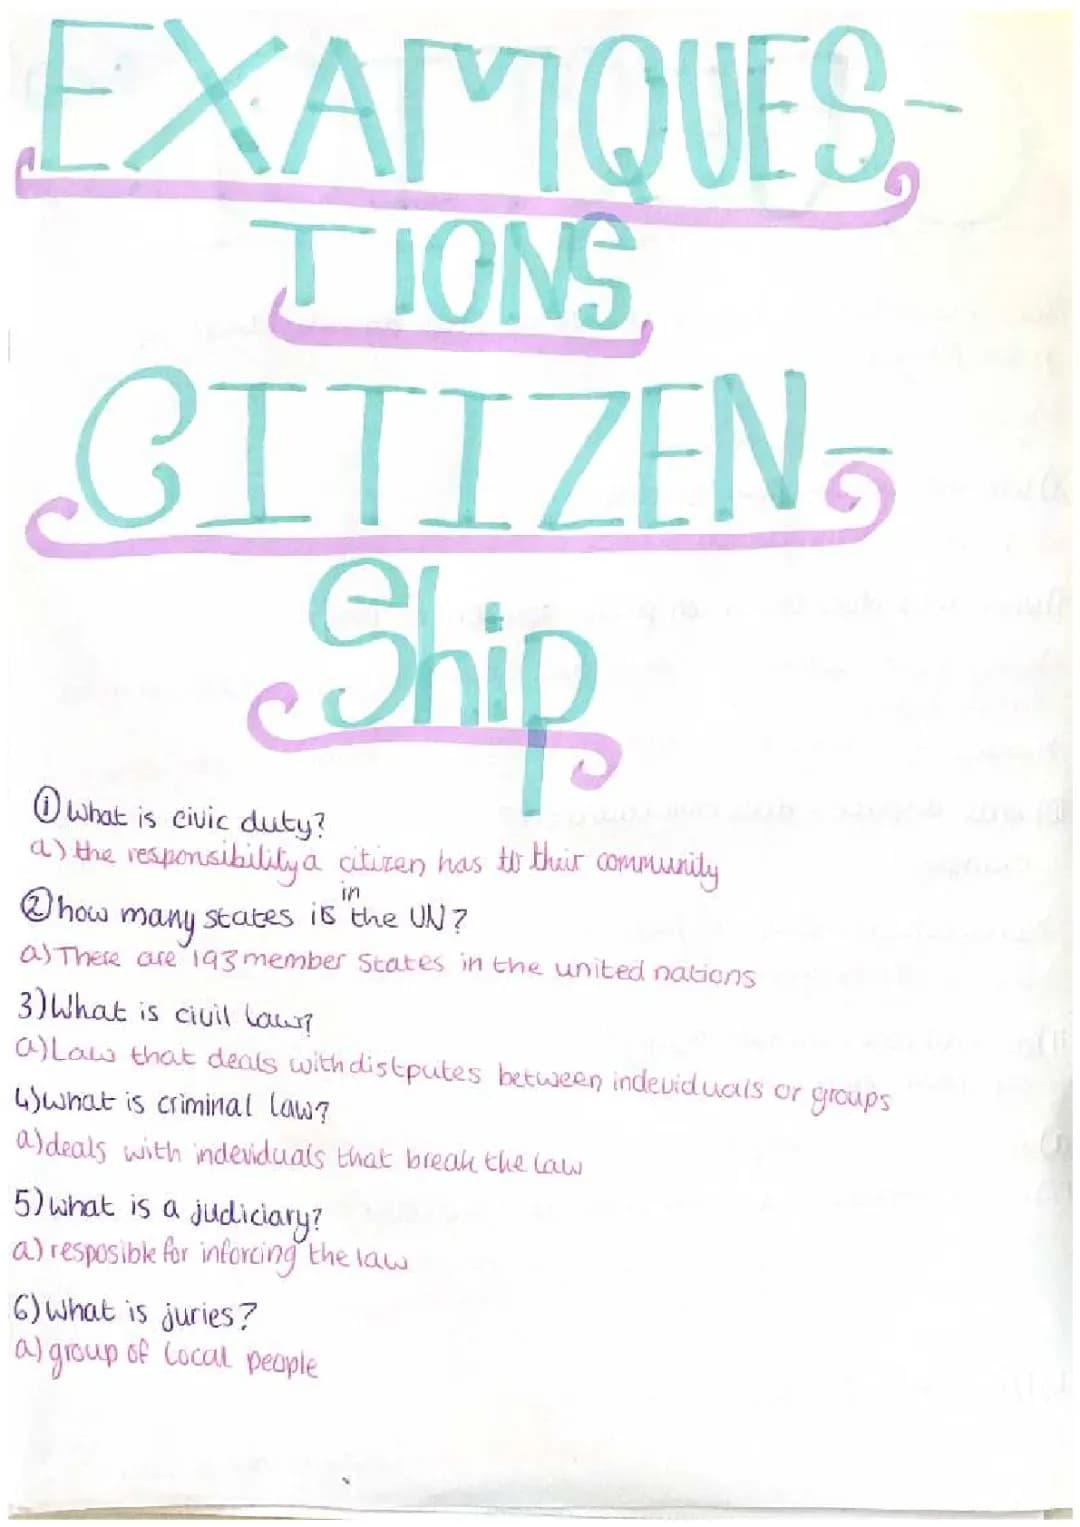 EXAMQUES-
TIONS
CITIZEN-
Ship
① What is civic duty?
a) the responsibility a citizen has to their community
② how many states is in the UN?
a) There are 193 member States in the united nations
3) What is civil law?
a) Law that deals with distputes between indeviduals or groups
4) what is criminal law?
a) deals with indeviduals that break the law
5) what is a judiciary?
a) resposible for inforcing the law
6) what is juries?
a) group of local people